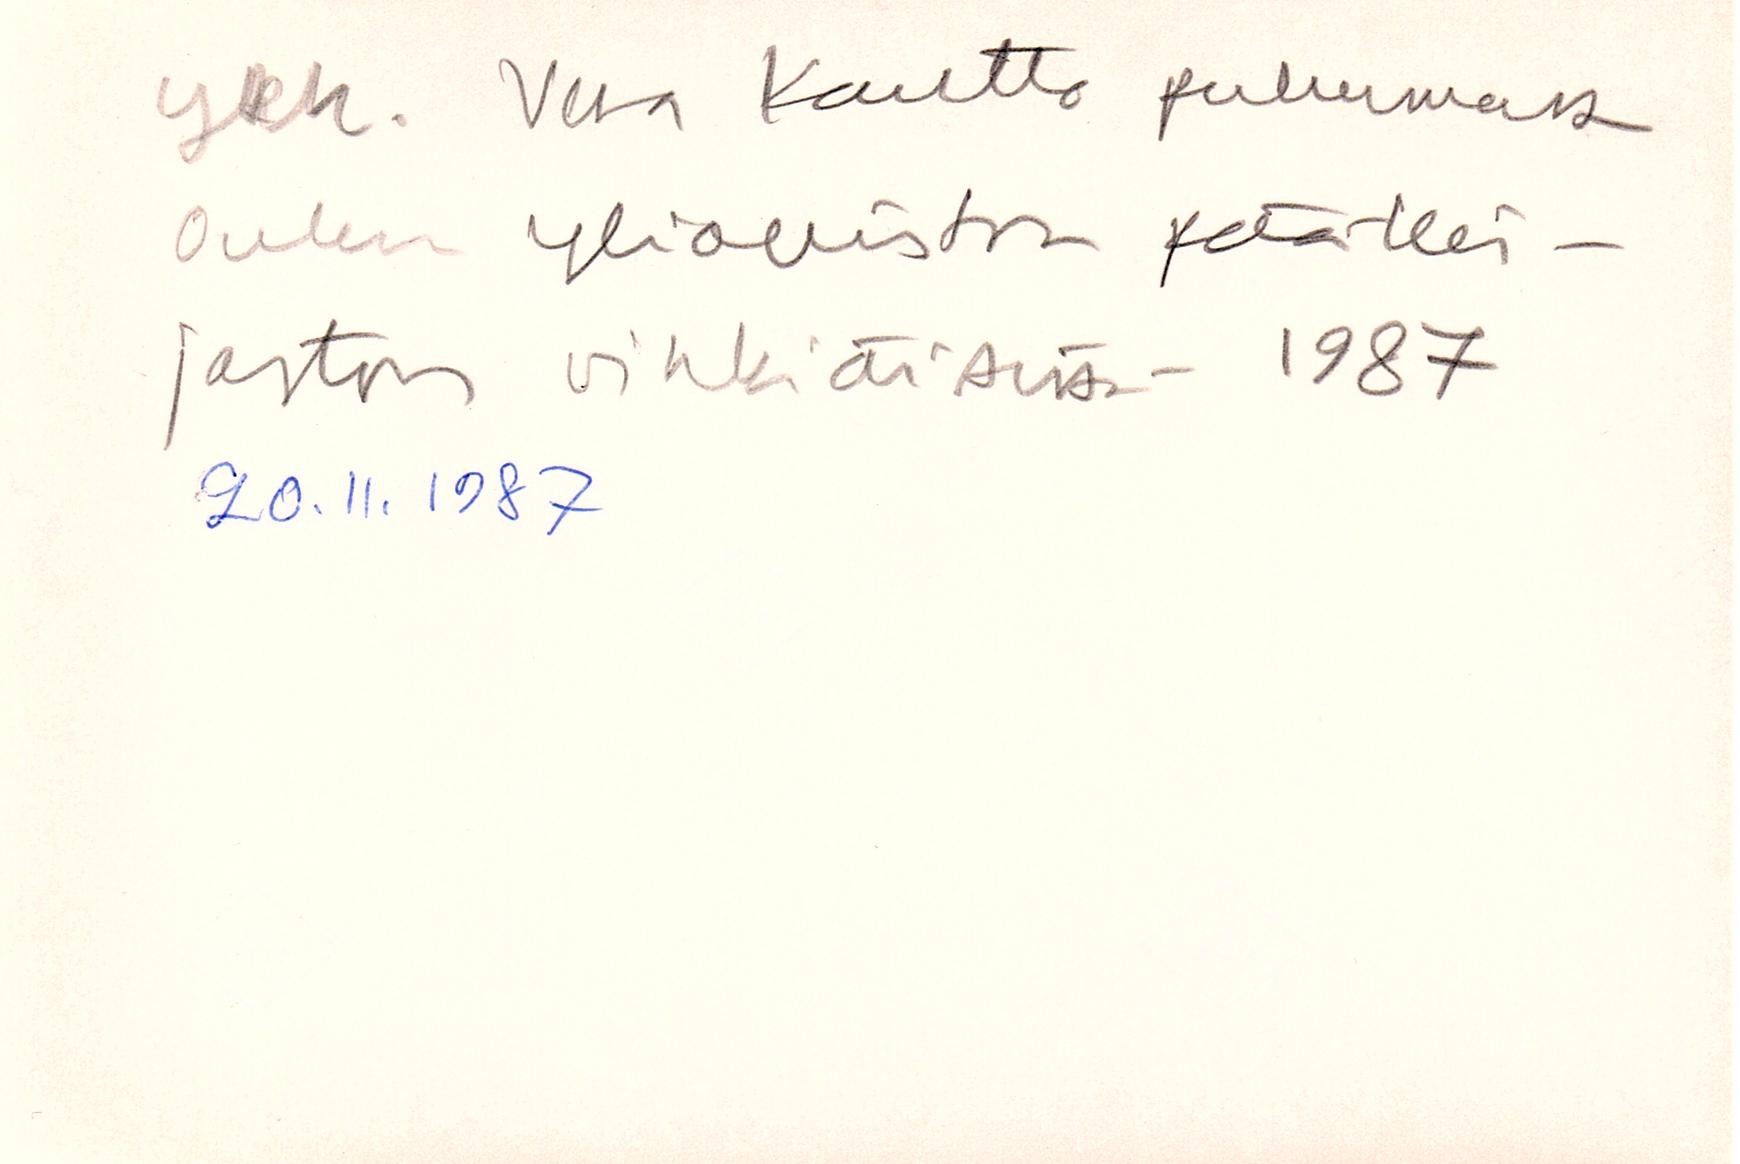 ykk. Vesa Kautto puhumassa
Oulun yliopiston pääkir-
jaston vihkiäisissä - 1987
20.11.1987